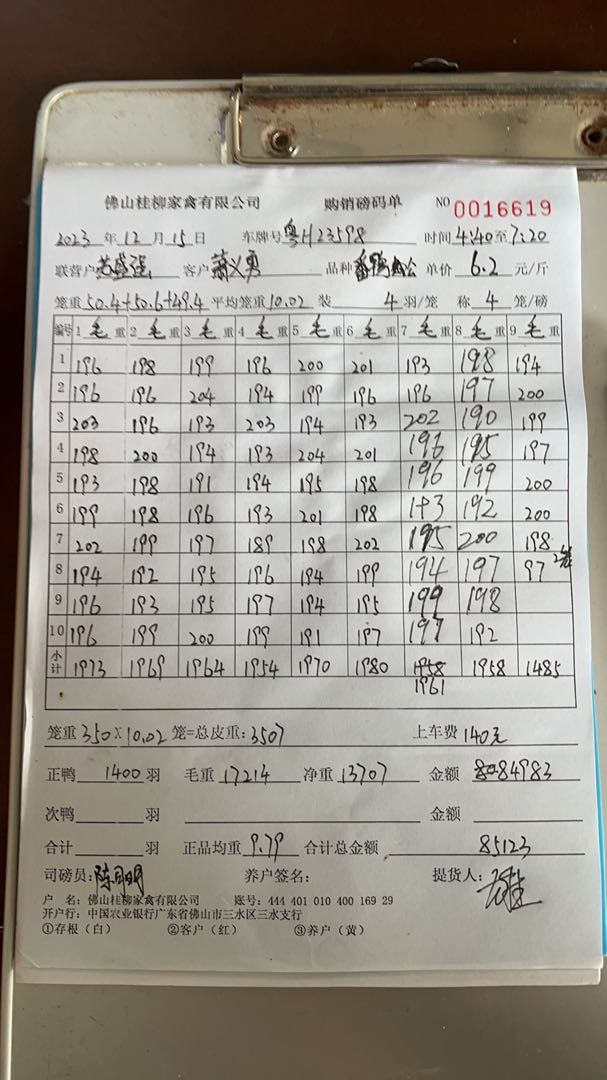 佛山桂柳家禽有限公司 购销磅码单 NO 0016619
2023 年 12 月 15 日 车牌号 粤H23598 时间 4:40 至 7:20
联营户 客户 萧义勇 品种 番鸭 公 单价 6.2 元/斤
笼重 50.4+50.6+49.4 平均笼重 10.02 装 4 羽/笼 称 4 笼/磅
编号 1 毛 重 2 毛 重 3 毛 重 4 毛 重 5 毛 重 6 毛 重 7 毛 重 8 毛 重 9 毛 重
1 196 198 199 196 200 201 193 198 194
2 196 196 204 194 199 196 196 197 200
3 203 196 193 203 194 193 202 190 199
4 198 200 194 193 204 201 196 195 197
5 193 198 191 194 195 198 196 199 200
6 199 198 196 193 201 198 193 192 200
7 202 199 197 189 198 202 195 200 198
8 194 192 195 196 194 199 194 197 97 2笼
9 196 193 195 197 194 195 199 198
10 196 199 200 199 191 197 197 192
小计 1973 1969 1964 1954 1970 1980 1958 1958 1485
1961
笼重 350 X 10.02 笼=总皮重: 3507 上车费 140元
正鸭 1400 羽 毛重 17214 净重 13707 金额 84983
次鸭 羽 金额
合计 羽 正品均重 9.79 合计总金额 85123
司磅员: 陈明明 养户签名: 提货人:
户 名: 佛山桂柳家禽有限公司 账号: 444 401 010 400 169 29
开户行: 中国农业银行广东省佛山市三水区三水支行
①存根(白) ②客户(红) ③养户(黄)